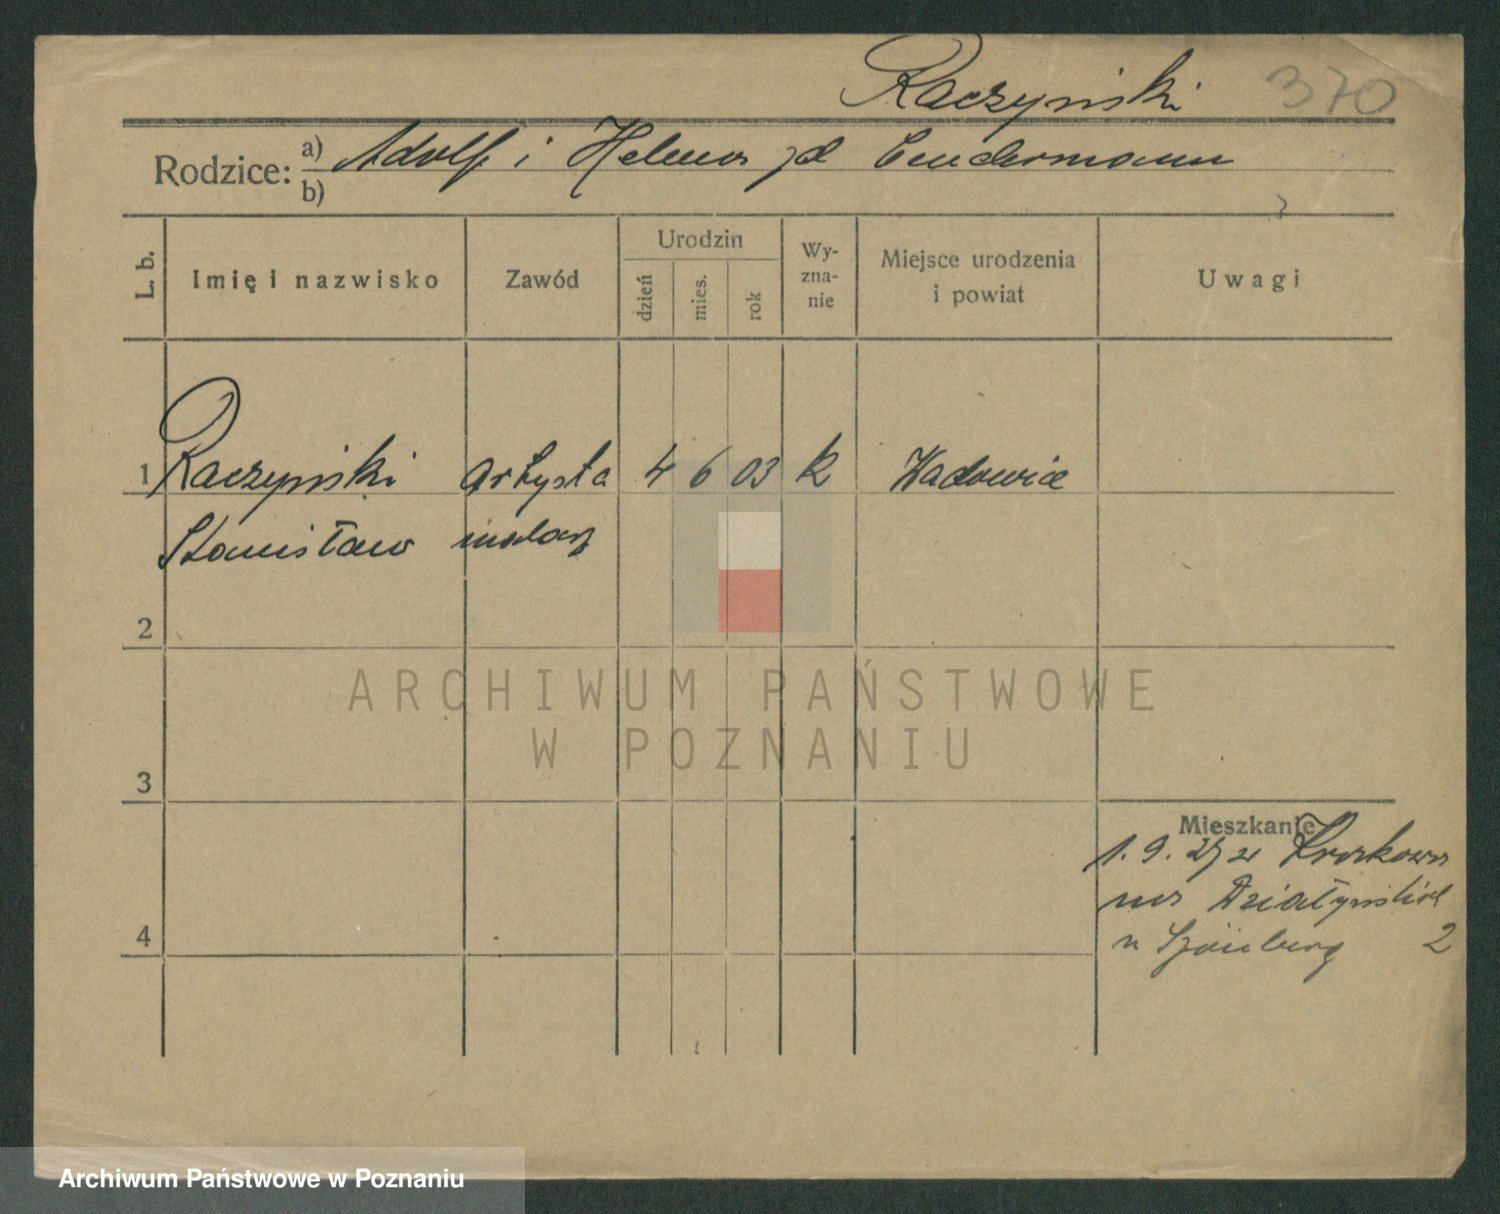 Raczyński 370
Rodzice: a) Adolf i Helena zd
b)
L. b.
Imię i nazwisko
Zawód
Urodzin
dzień
mies.
rok
Wy-
zna-
nie
Miejsce urodzenia
i powiat
Uwagi
1 Raczyński artysta 4 6 03 k Wadowice
Stanisław malarz
2
3
4
Mieszkanie
1. 9. 27 z Krakowa
na Działyńskich
u 2
ARCHIWUM PAŃSTWOWE
W POZNANIU
Archiwum Państwowe w Poznaniu